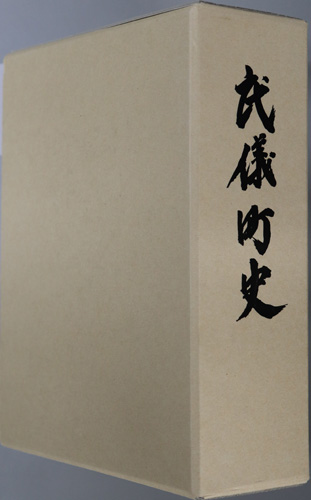 武儀町史